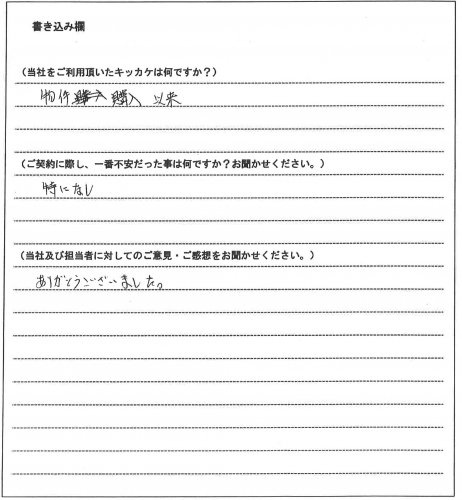 書き込み欄
(当社をご利用頂いたキッカケは何ですか?)
物件 購入 以来
(ご契約に際し、一番不安だった事は何ですか?お聞かせください。)
特になし
(当社及び担当者に対してのご意見・ご感想をお聞かせください。)
ありがとうございました。